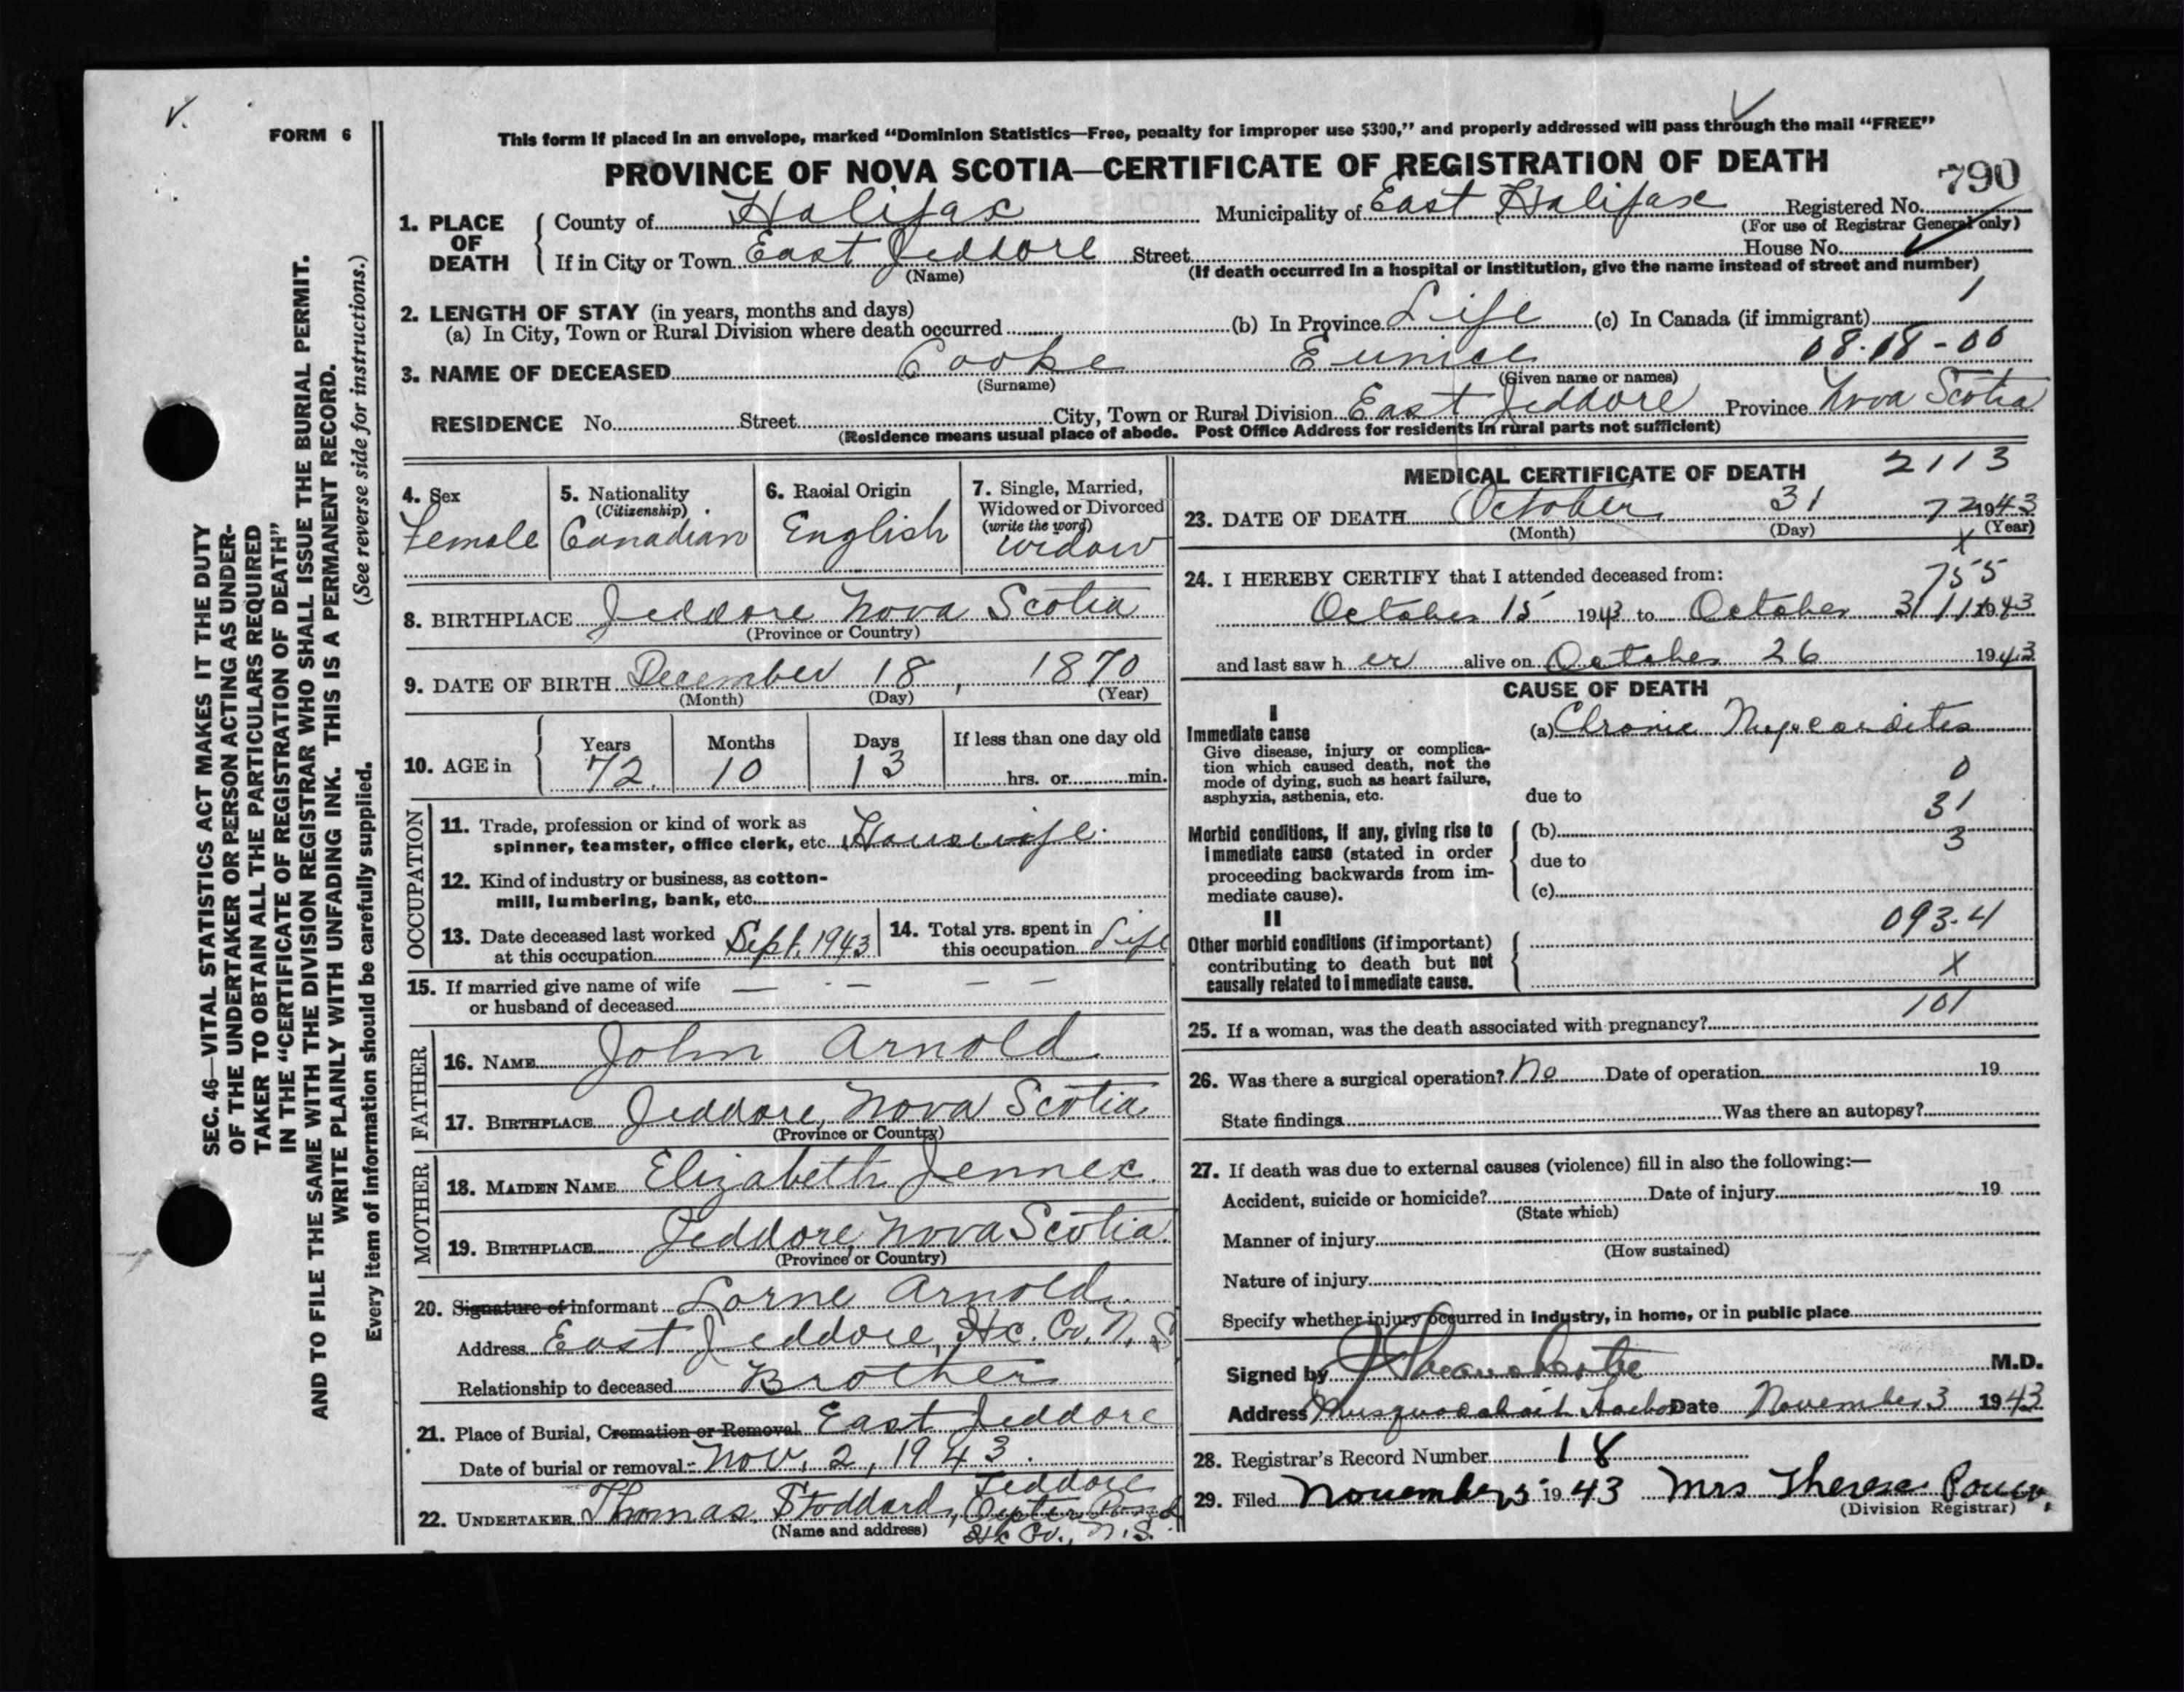 V.
FORM 6
This form if placed in an envelope, marked “Dominion Statistics—Free, penalty for improper use $300,” and properly addressed will pass through the mail “FREE”
PROVINCE OF NOVA SCOTIA—CERTIFICATE OF REGISTRATION OF DEATH
790
1. PLACE OF DEATH County of Halifax Municipality of East Halifax Registered No.
(For use of Registrar General only)
If in City or Town East Jeddore Street House No.
(Name) (If death occurred in a hospital or institution, give the name instead of street and number)
2. LENGTH OF STAY (in years, months and days) 1
(a) In City, Town or Rural Division where death occurred (b) In Province Life (c) In Canada (if immigrant)
3. NAME OF DECEASED Cooke Eunice 08.18-00
(Surname) (Given name or names)
RESIDENCE No. Street City, Town or Rural Division East Jeddore Province Nova Scotia
(Residence means usual place of abode. Post Office Address for residents in rural parts not sufficient)
4. Sex 5. Nationality 6. Racial Origin 7. Single, Married,
(Citizenship) Widowed or Divorced
(write the word)
Female Canadian English Widow
8. BIRTHPLACE Jeddore Nova Scotia
(Province or Country)
9. DATE OF BIRTH December 18, 1870
(Month) (Day) (Year)
10. AGE in Years Months Days If less than one day old
72 10 13 hrs. or min.
OCCUPATION
11. Trade, profession or kind of work as
spinner, teamster, office clerk, etc. Housewife
12. Kind of industry or business, as cotton-
mill, lumbering, bank, etc.
13. Date deceased last worked 14. Total yrs. spent in
at this occupation Sept. 1943 this occupation Life
15. If married give name of wife
or husband of deceased
FATHER
16. NAME John Arnold
17. BIRTHPLACE Jeddore, Nova Scotia
(Province or Country)
MOTHER
18. MAIDEN NAME Elizabeth Jennex
19. BIRTHPLACE Jeddore, Nova Scotia
(Province or Country)
20. Signature of informant Lorne Arnold
Address East Jeddore, Hx. Co. N.S
Relationship to deceased Brother
21. Place of Burial, Cremation or Removal East Jeddore
Date of burial or removal Nov. 2, 1943.
Jeddore
22. UNDERTAKER Thomas Stoddard, Oyster Pond
(Name and address) Hx Co., N.S.
MEDICAL CERTIFICATE OF DEATH 2113
23. DATE OF DEATH October 31 72 1943
(Month) (Day) (Year)
X
24. I HEREBY CERTIFY that I attended deceased from: 755
October 15 1943 to October 31 111 1943
and last saw her alive on October 26 1943
CAUSE OF DEATH
I
Immediate cause (a) Chronic Myocarditis
Give disease, injury or complica-
tion which caused death, not the
mode of dying, such as heart failure, 0
asphyxia, asthenia, etc. due to
31
Morbid conditions, if any, giving rise to (b)
immediate cause (stated in order 3
proceeding backwards from im- due to
mediate cause). (c)
II
093.4
Other morbid conditions (if important)
contributing to death but not X
causally related to immediate cause.
101
25. If a woman, was the death associated with pregnancy?
26. Was there a surgical operation? No Date of operation 19
State findings Was there an autopsy?
27. If death was due to external causes (violence) fill in also the following:—
Accident, suicide or homicide? Date of injury 19
(State which)
Manner of injury
(How sustained)
Nature of injury
Specify whether injury occurred in industry, in home, or in public place
Signed by M.D.
Address Musquodoboit Harbor Date November 3 1943
28. Registrar’s Record Number 18
29. Filed November 5 1943 Mrs Therese Power.
(Division Registrar)
SEC. 46—VITAL STATISTICS ACT MAKES IT THE DUTY
OF THE UNDERTAKER OR PERSON ACTING AS UNDER-
TAKER TO OBTAIN ALL THE PARTICULARS REQUIRED
IN THE “CERTIFICATE OF REGISTRATION OF DEATH”
AND TO FILE THE SAME WITH THE DIVISION REGISTRAR WHO SHALL ISSUE THE BURIAL PERMIT.
WRITE PLAINLY WITH UNFADING INK. THIS IS A PERMANENT RECORD.
Every item of information should be carefully supplied. (See reverse side for instructions.)